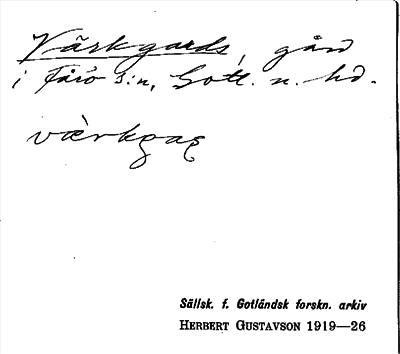 Värkgards, gård
i Fårö s:n, Gotl. n. hd.
värkgag
Sällsk. f. Gotländsk forskn. arkiv
HERBERT GUSTAVSON 1919—26